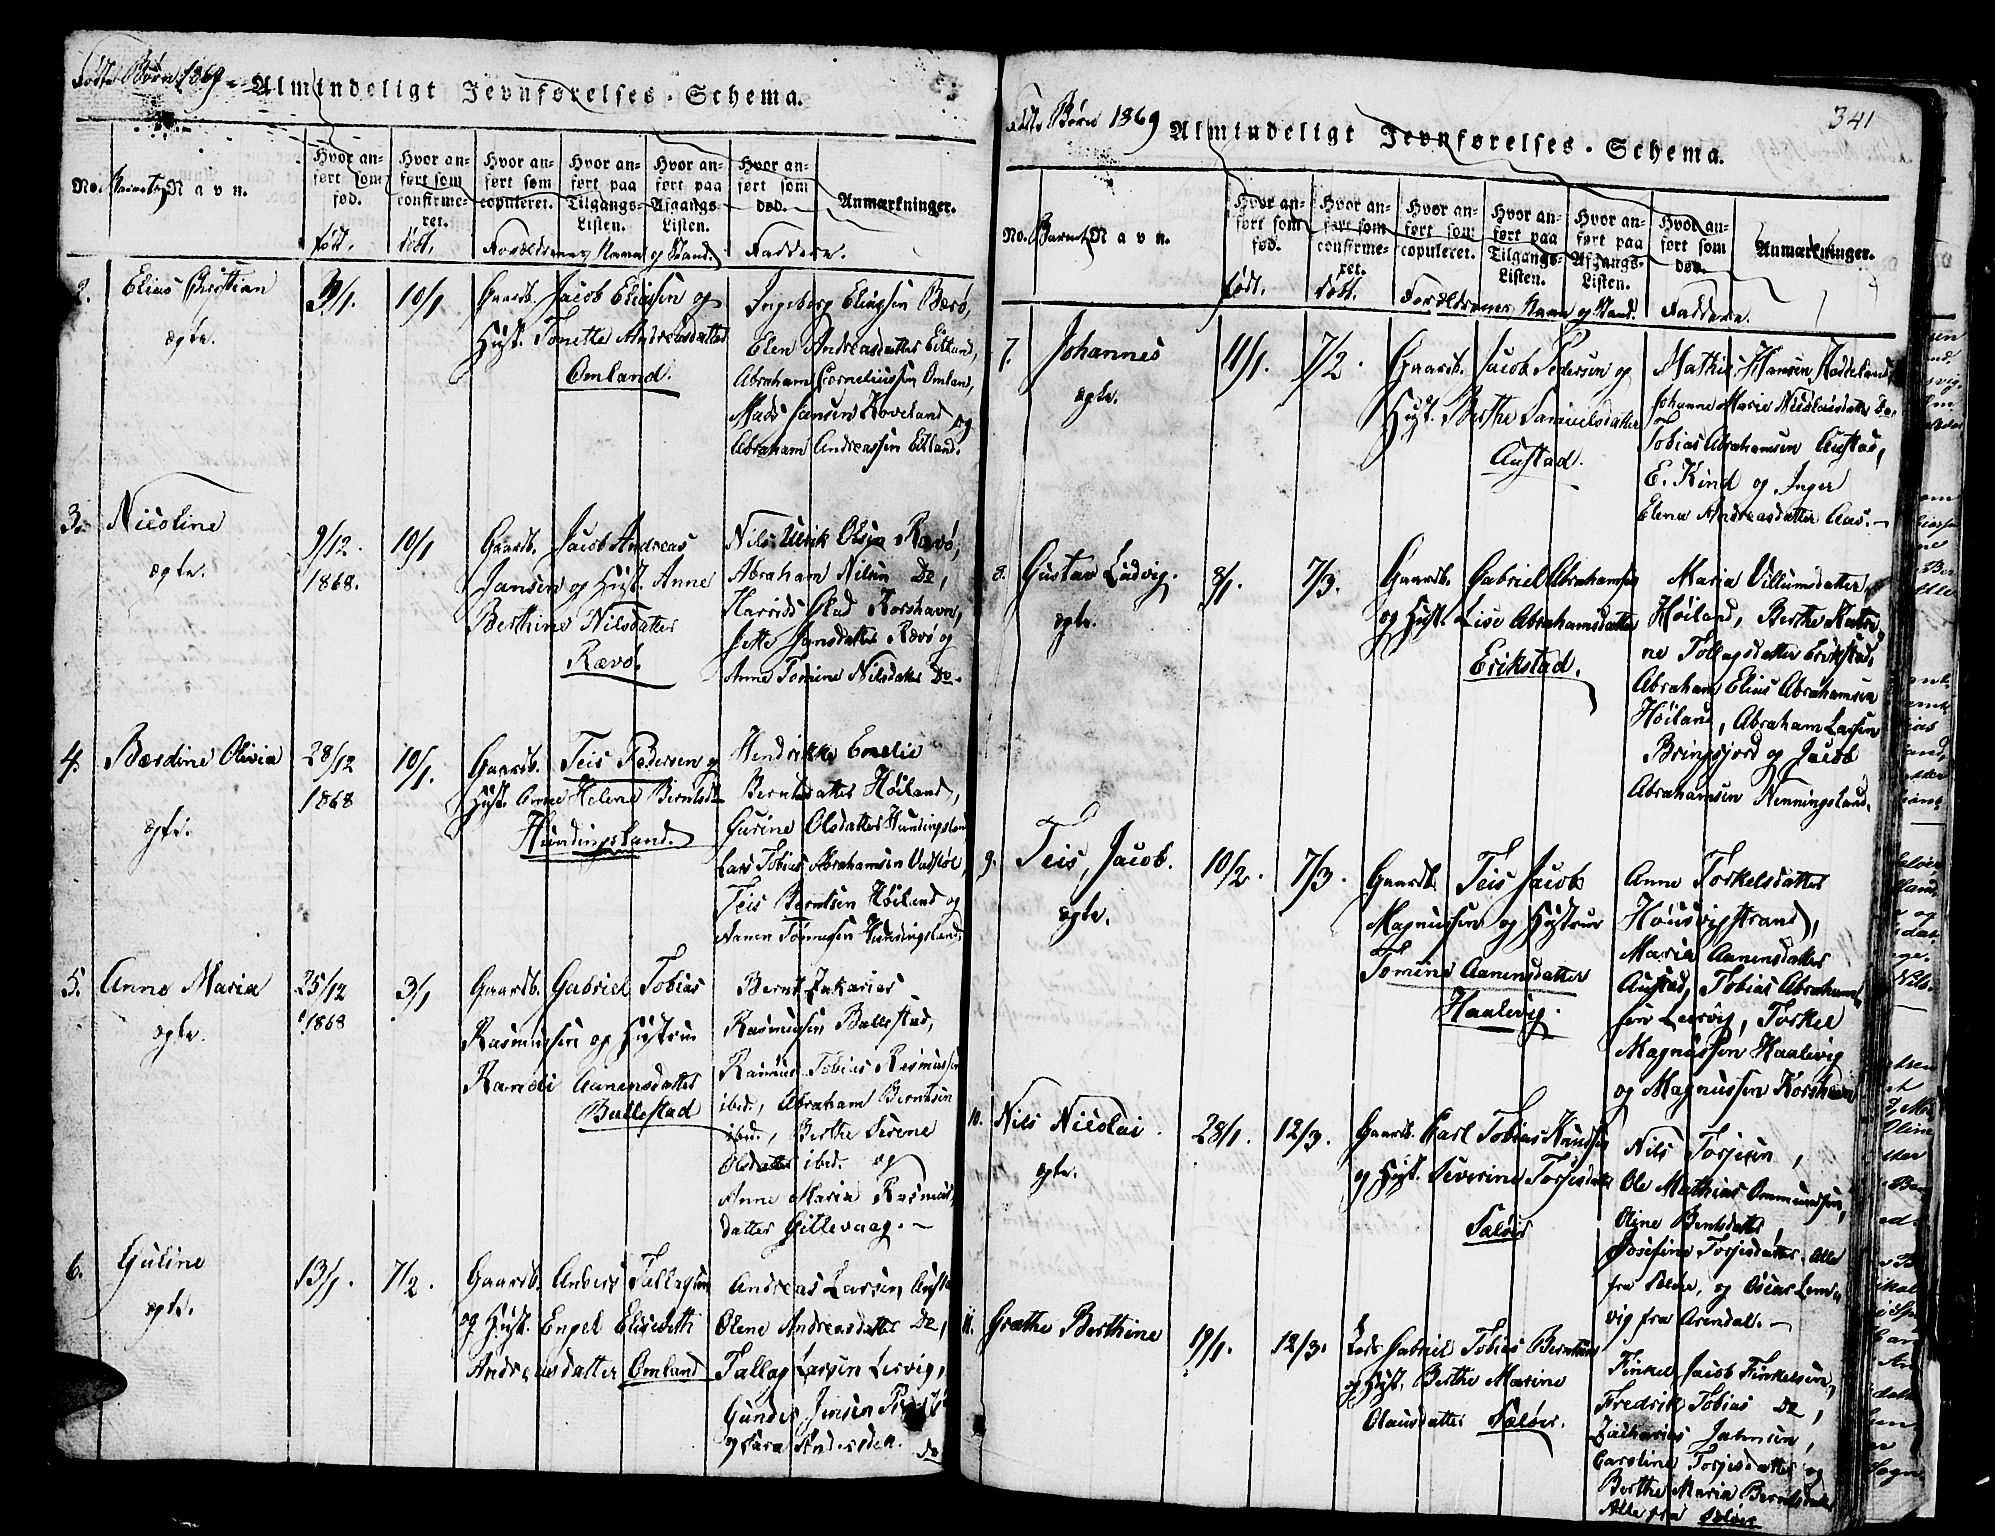 Födte Børn 1869.
Almindeligt Jevnførelses-Schema.
No. Barnets Navn.
Hvor anført som fød.
Hvor anført som confirmeret.
Hvor anført som copuleret.
Hvor anført paa Tilgangs-Listen.
Hvor anført paa Afgangs-Listen.
Hvor anført som død.
Anmærkninger.
født. døbt. Forældrenes Navn og Stand. Faddere.
2. Elias Christian
ægte.
3/1.
10/1
Gaardb. Jacob Eliassen og
Hust. Tonette Andreasdatter
Omland.
Ingeborg Eliassen Rævø,
Elen Andreasdatter Eitland,
Abraham Corneliussen Omland,
Mads Jansen Koveland og
Abraham Andreassen Eitland.
3. Nicoline
ægte.
9/12.
1868.
10/1
Gaardb. Jacob Andreas
Jansen og Hust. Anne
Berthine Nilsdatter
Rævø.
Nils Ulrik Olsen Rævø,
Abraham Nilsen Do,
Harrids Korshavn,
Jette Jansdatter Rævø og
Anne Tomine Nilsdatter Do.
4. Bærdine Olivia
ægte.
28/12
1868
10/1.
Gaardb. Teis Pedersen og
Hust. Anne Helene Berntsdtr
Hundingsland.
Hendrikke Emelie
Berntsdatter Høiland,
Gurine Olsdatter Hundingsland
Lars Tobias Abrahamsen Vadstøl,
Teis Berntsen Høiland og
Aanen Tønnesen Hundingsland.
5. Anne Maria
ægte.
25/12
1868
3/1
Gaardb. Gabriel Tobias
Rasmussen og Hustrue
Randi Aanensdatter
Ballestad
Bernt Zakarias
Rasmussen Ballestad,
Rasmus Tobias Rasmussen
ibid., Abraham Berntsen
ibid., Berthe Serene
Olsdatter ibid. og
Anne Maria Rasmus-
datter Gillevaag.—
6. Guline
ægte.
13/1.
7/2.
Gaardb. Anders Tallagsen
og Hust. Engel Elisebeth
Andreasdatter Omland
Andreas Larsen, Austad
Olene Andreasdatter Do,
Tallag Larsen Lervig,
Gunder Jensen
og Sara Andersdatt. Do
341
Födte Børn 1869
Almindeligt Jevnførelses-Schema.
No. Barnets Navn.
Hvor anført som fød.
Hvor anført som confirmeret.
Hvor anført som copuleret.
Hvor anført paa Tilgangs-Listen.
Hvor anført paa Afgangs-Listen.
Hvor anført som død.
Anmærkninger.
født. døbt. Forældrenes Navn og Stand. Faddere.
7. Johannes
ægte.
11/1.
7/2.
Gaardb. Jacob Pedersen og
Hust. Berthe Samuelsdatter
Austad.
Mathis Hansen Haddeland,
Johanne Marie Nicolaisdatter Do.
Tobias Abrahamsen Austad,
E. Kind og Inger
Elena Andreasdatter Aas.—
8. Gustav Ludvig.
ægte.
8/1.
7/3.
Gaardb. Gabriel Abrahamsen
og Hust. Lise Abrahamsdatter
Erikstad.
Maria Villumsdatter
Høiland, Berthe Katri-
ne Tollagsdatter Erikstad,
Abraham Elias Abrahamsen
Høiland, Abraham Larsen
Bringsjord og Jacob
Abrahamsen Nenningsland.
9. Teis, Jacob.
ægte.
10/2.
7/3.
Gaardb. Teis Jacob
Magnussen og Hustrue
Tomine Aanensdatter
Haalevig.
Anne Torkelsdatter
Housvigstrand,
Maria Aanensdatter
Austad, Tobias Abraham-
sen Lervig, Torkel
Magnussen Haalevig
og Magnussen Korshavn
10. Nils Nicolai.
ægte.
28/1.
12/3.
Gaardb. Carl Tobias Knudsen
og Hust. Severine Torjesdatter
Sæløer
Nils Torjesen,
Ole Mathias Ommundsen,
Oline Berntsdatter,
Josefine Torjesdatter, Alle
fra Sæløe, og Oscar Lem-
vig fra Arendal.—
11. Grethe Berthine
19/1.
12/3.
Lods Gabriel Tobias Berntsen
og Hust. Berthe Marine
Olausdatter Sæløer.
Finkel Jacob Finkelsen,
Fredrik Tobias Do,
Zacharias Jahnsen,
Caroline Torjesdatter og
Berthe Maria Berntsdatter
Alle fra Sæløer